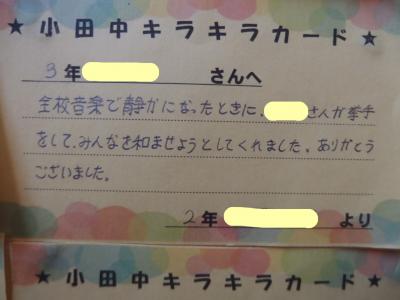 ★ 小田中キラキラカード ★
3年 さんへ
全校音楽で静かになったときに、 さんが挙手
をして、みんなを和ませようとしてくれました。ありがとう
ございました。
2年 より
★ 小田中キラキラカード ★